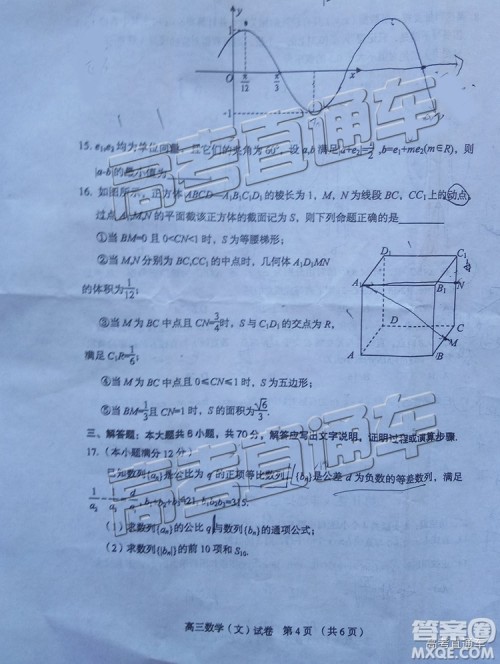 y
1
O
π
12
π
3
x
-1
15. e₁,e₂均为单位向量，且它们的夹角为60°，设a,b满足|a+e₂|= 2 ,b=e₁+me₂(m∈R)，则
|a-b|的最小值为
16. 如图所示，正方体ABCD—A₁B₁C₁D₁的棱长为1，M，N为线段BC，CC₁上的动点，
过点A₁,M,N的平面截该正方体的截面记为S，则下列命题正确的是
①当BM=0且0<CN<1时，S为等腰梯形；
②当M,N分别为BC,CC₁的中点时，几何体A₁D₁MN
的体积为1/12；
③当M为BC中点且CN=3/4时，S与C₁D₁的交点为R，
满足C₁R=1/6；
④当M为BC中点且0≤CN≤1时，S为五边形；
⑤当BM=1/3且CN=1时，S的面积为√6/3.
D₁
C₁
A₁
B₁
N
D
C
M
A
B
三、解答题：本大题共6小题，共70分，解答应写出文字说明，证明过程或演算步骤.
17.（本小题满分12分）
已知数列{aₙ}是公比为q的正项等比数列，{bₙ}是公差d为负数的等差数列，满足
1/a₂ - 1/a₃ = d/a₁, b₁+b₂+b₃=21, b₁b₂b₃=315.
（1）求数列{aₙ}的公比q与数列{bₙ}的通项公式；
（2）求数列{|bₙ|}的前10项和S₁₀.
高三数学（文）试卷 第4页 （共6页）
高考直通车
高考直通车
高考直通车
高考直通车
答案圈
MXQE.COM